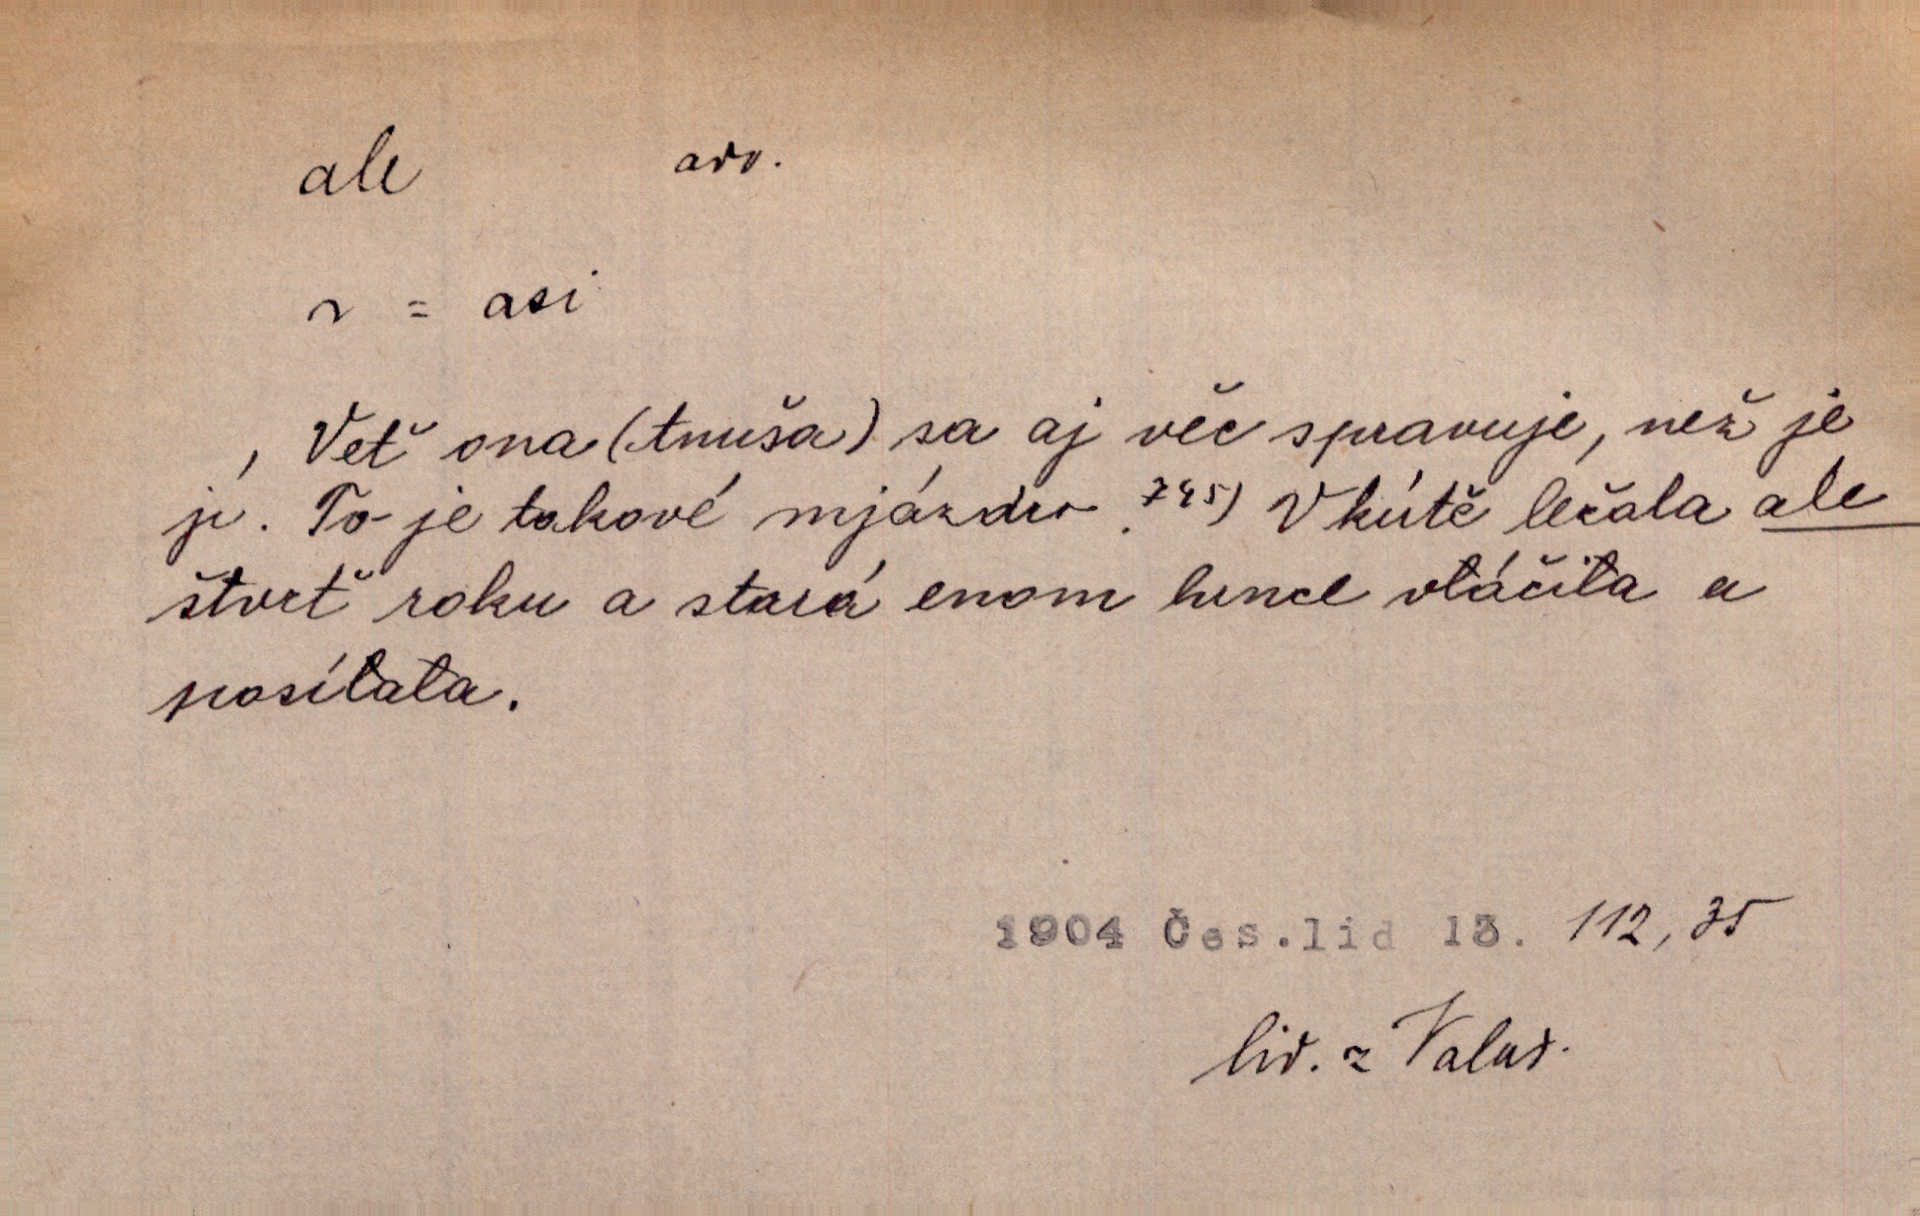 ale adv.
~ = asi
, Veť ona (Anuša) sa aj věc spravuje, než je
jí. To je takové mjázdro. 745) V kútě ležala ale
štvrť roku a stará enom hrnce vłáčiła a
posíłała.
1904 Čes.lid 13. 112, 35
lid. z Valad.